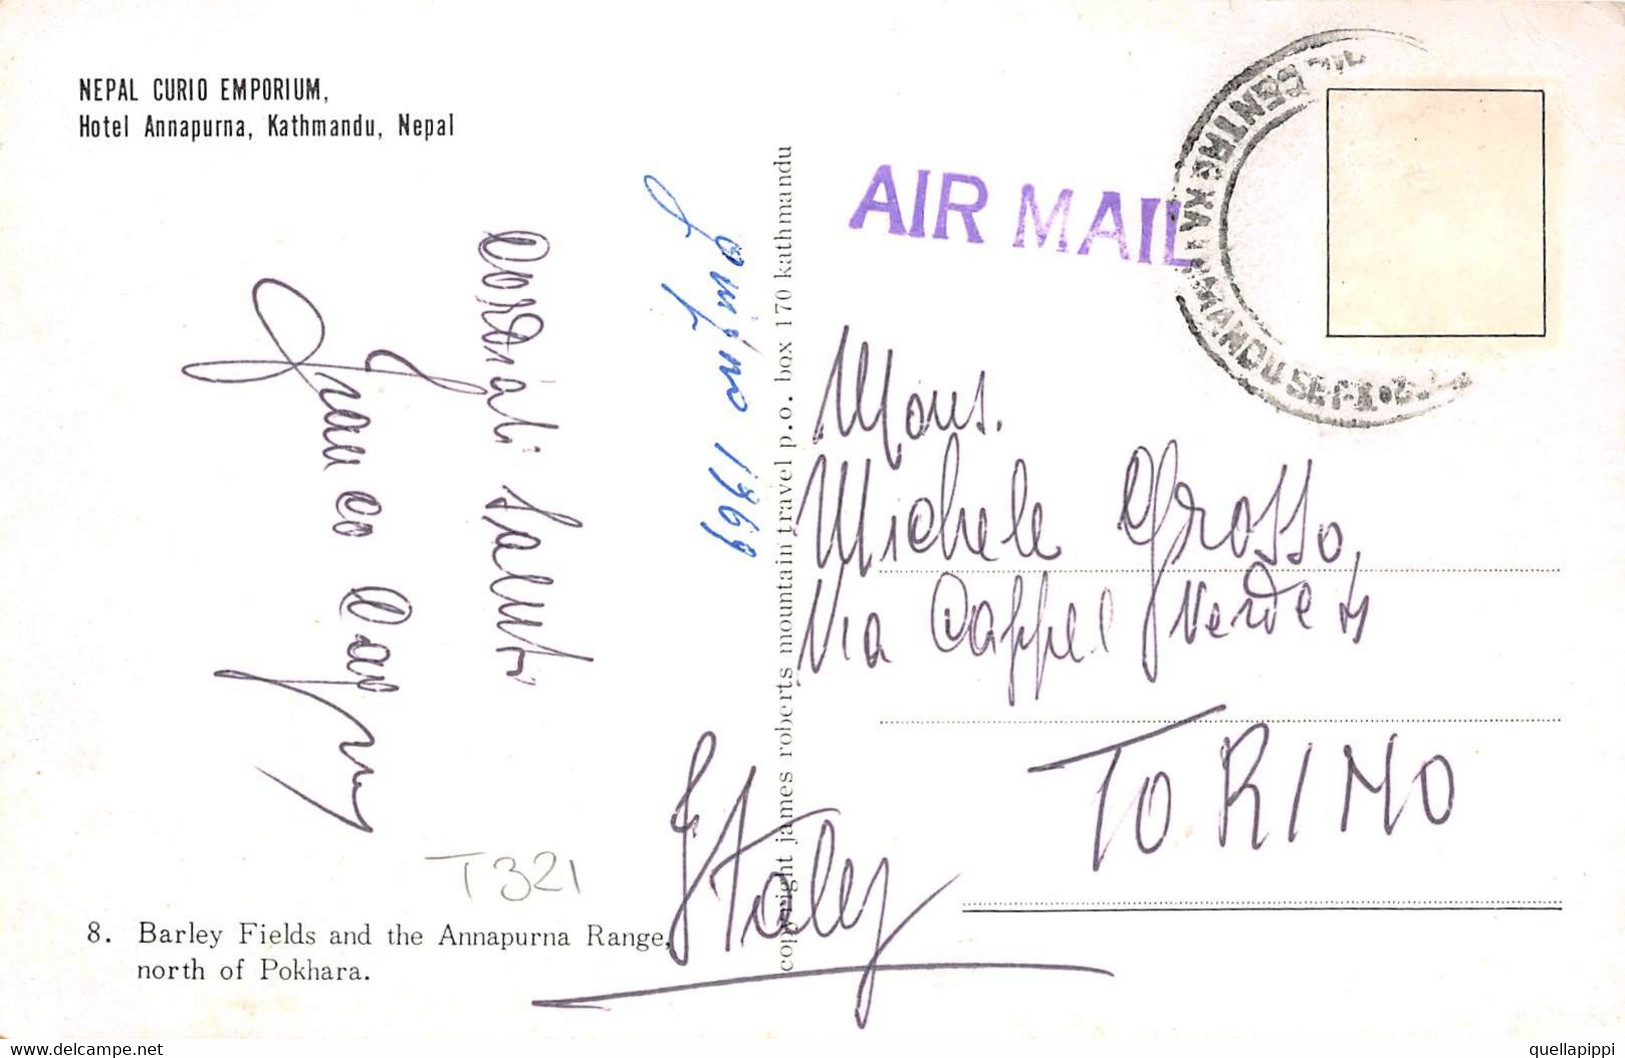 NEPAL CURIO EMPORIUM,
Hotel Annapurna, Kathmandu, Nepal
AIR MAIL
Cordiali saluti
Franco
giugno 1969
copyright james roberts mountain travel p.o. box 170 kathmandu
Mons.
Michele Grosso,
Via Cappel Verde
TORINO
Italy
T321
8. Barley Fields and the Annapurna Range,
north of Pokhara.
https://www.delcampe.net
quellapippi